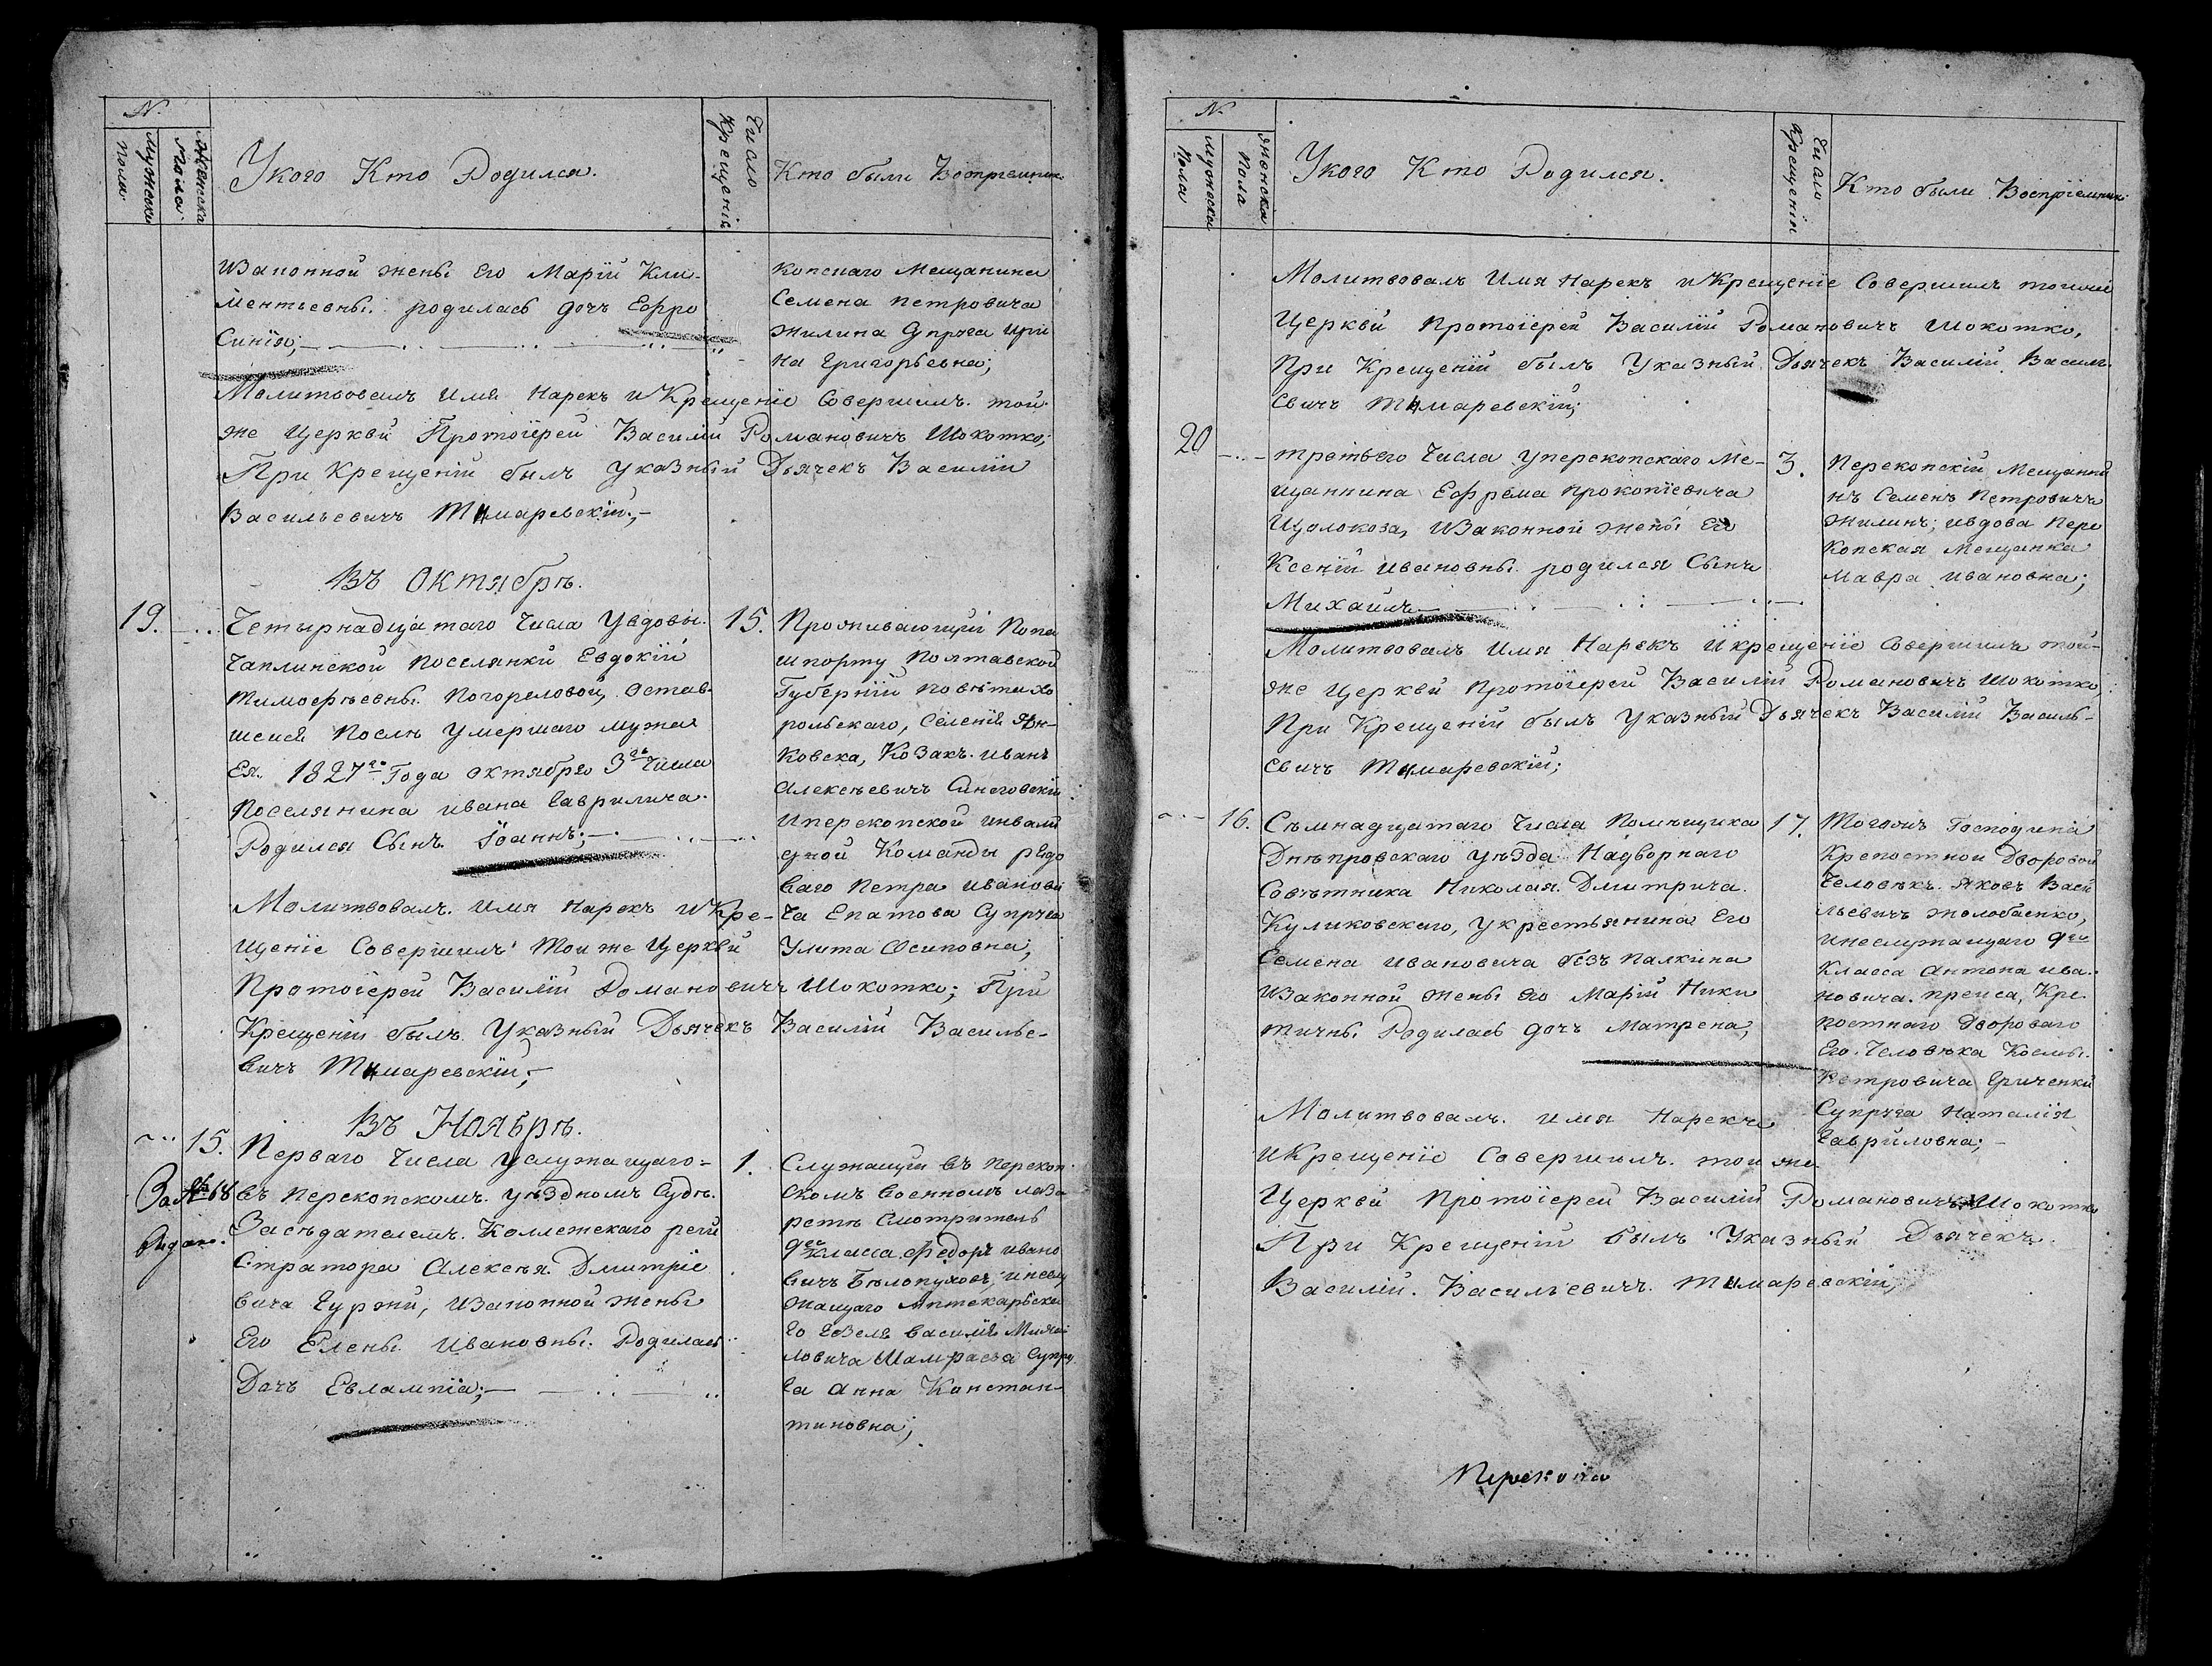 №
Мужеска Пола
Женска Пола
Укого Кто Родился.
Число Крещенія
Кто были Воспріемник
Изаконной жены его Маріи Кли-
ментьевны родилась дочь Ефро
Синія;
копскаго Мещанина
Семена петровича
жилина Супруга ири
на Григорьевна;
Молитвовалъ имя Нарекъ и Крещеніе Совершилъ той
же Церкви Протоіерей Василій Романовичъ Шокотко;
При Крещеніи былъ Указный Дьячекъ Василій
Васильевичъ Тимаревскій;
Въ Октябрѣ.
19.
Четырнадцатаго Числа Увдовы
Чаплинской поселянки Евдокіи
Тимофѣевны Погореловой, Остав-
шейся Послѣ Умершаго мужа
Ея, 1827го Года октября 3го Числа
Поселянина ивана Гаврилича
Родился Сынъ Іоаннъ;
15.
Проживающій Попа
шпорту Полтавской
Губерніи повѣта Хо
рольскаго, Селенія
ковска, Козакъ иванъ
Алексѣевичъ Снеговскій
Иперекопской инвали
дной Команды рядо
ваго Петра иванови
ча Епатова Супруга
Улита Осиповна;
Молитвовалъ имя нарекъ и Кре-
щеніе Совершилъ Тойже Церкви
Протоіерей Василій Романовичъ Шокотко; При
Крещеніи былъ Указный Дьячекъ Василій Василье-
вичъ Тимаревскій;
Въ Ноябрѣ.
15.
За № 68
Выдано.
Перваго Числа Услужащаго
въ перекопскомъ уѣздномъ Судѣ
Засѣдателемъ Коллежскаго реги
стратора Алексѣя Дмитріе
вича Гуржи, Изаконной жены
Его Елены Ивановны Родилась
Дочь Евлампіа;
1.
Служащій въ перекоп
скомъ военномъ лаза
ретѣ Смотритель
9го класса, Федоръ ивано
вичъ Бѣлопуховъ, инеслу
жащаго Аптекарьска
го Гезеля Василія Михай
ловича Шамраева Супру
га Анна Констан-
тиновна;
№
Мужеска Пола
Женска Пола
Укого Кто Родился.
Число Крещенія
Кто были Воспріемники
Молитвовалъ Имя Нарекъ и Крещеніе Совершилъ тойже
Церкви Протоіерей Василій Романовичъ Шокотко,
При Крещеніи былъ Указный Дьячекъ Василій Василь
евичъ Тимаревскій;
20
третьего Числа Уперекопскаго Ме-
щанина Ефрема прокопіевича
Щолокоза, Изаконной жены Его
Ксеніи Ивановны родился Сынъ
Михаилъ
3.
Перекопскій Мещани
нъ Семенъ Петровичъ
Жилинъ; ивдова Пере
копская мещанка
Мавра ивановна;
Молитвовалъ имя Нарекъ и крещеніе Совершилъ той-
же Церкви Протоіерей Василій Романовичъ Шокотко,
При Крещеніи былъ Указный Дьячекъ Василій Василь-
евичъ Тимаревскій;
16.
Съмнадцатаго Числа Помѣщика
Днѣпровскаго уѣзда Надворнаго
Совѣтника Николая Дмитрича
Куликовскаго, Укрестьянина Его
Семена Ивановича безъ палкина
Изаконной жены Его Маріи Ники
тичны Родилась дочь Матрена,
17.
Тогожъ Господина
Крепостной Дворовой
Человѣкъ Яковъ Васи
льевичъ Жолобаенко,
инеслужащаго 9го
Класса Антона ива
новича прейса, Кре
постнаго Двороваго
Его Человѣка Косьмы
Петровича Гриченки
Супруга Наталія
Гавриловна;
Молитвовалъ имя Нарекъ
и Крещеніе Совершилъ той же
Церкви Протоіерей Василій Романовичъ Шокотко
При Крещеніи былъ Указный Дьячекъ
Василій Васильевичъ Тимаревскій,
Перекопа